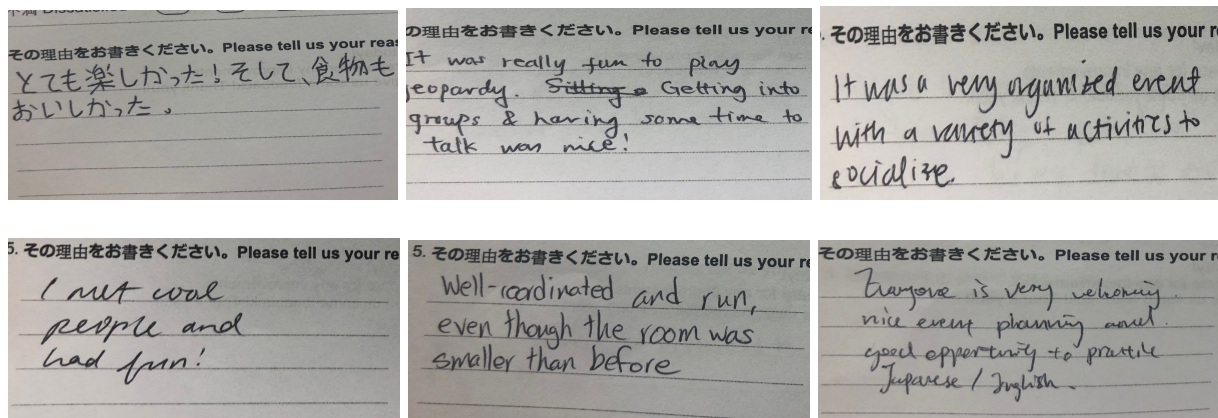 その理由をお書きください。Please tell us your reas
とても楽しかった!そして、食物も
おいしかった。
の理由をお書きください。Please tell us your re
It was really fun to play
jeopardy. Getting into
groups & having some time to
talk was nice!
. その理由をお書きください。Please tell us your r
It was a very organized event
with a variety of activities to
socialize.
5. その理由をお書きください。Please tell us your re
I met cool
people and
had fun!
5. その理由をお書きください。Please tell us your r
Well-coordinated and run,
even though the room was
smaller than before
その理由をお書きください。Please tell us your r
Everyone is very welcoming.
nice event planning and
good oppertunity to practice
Japanese / English.